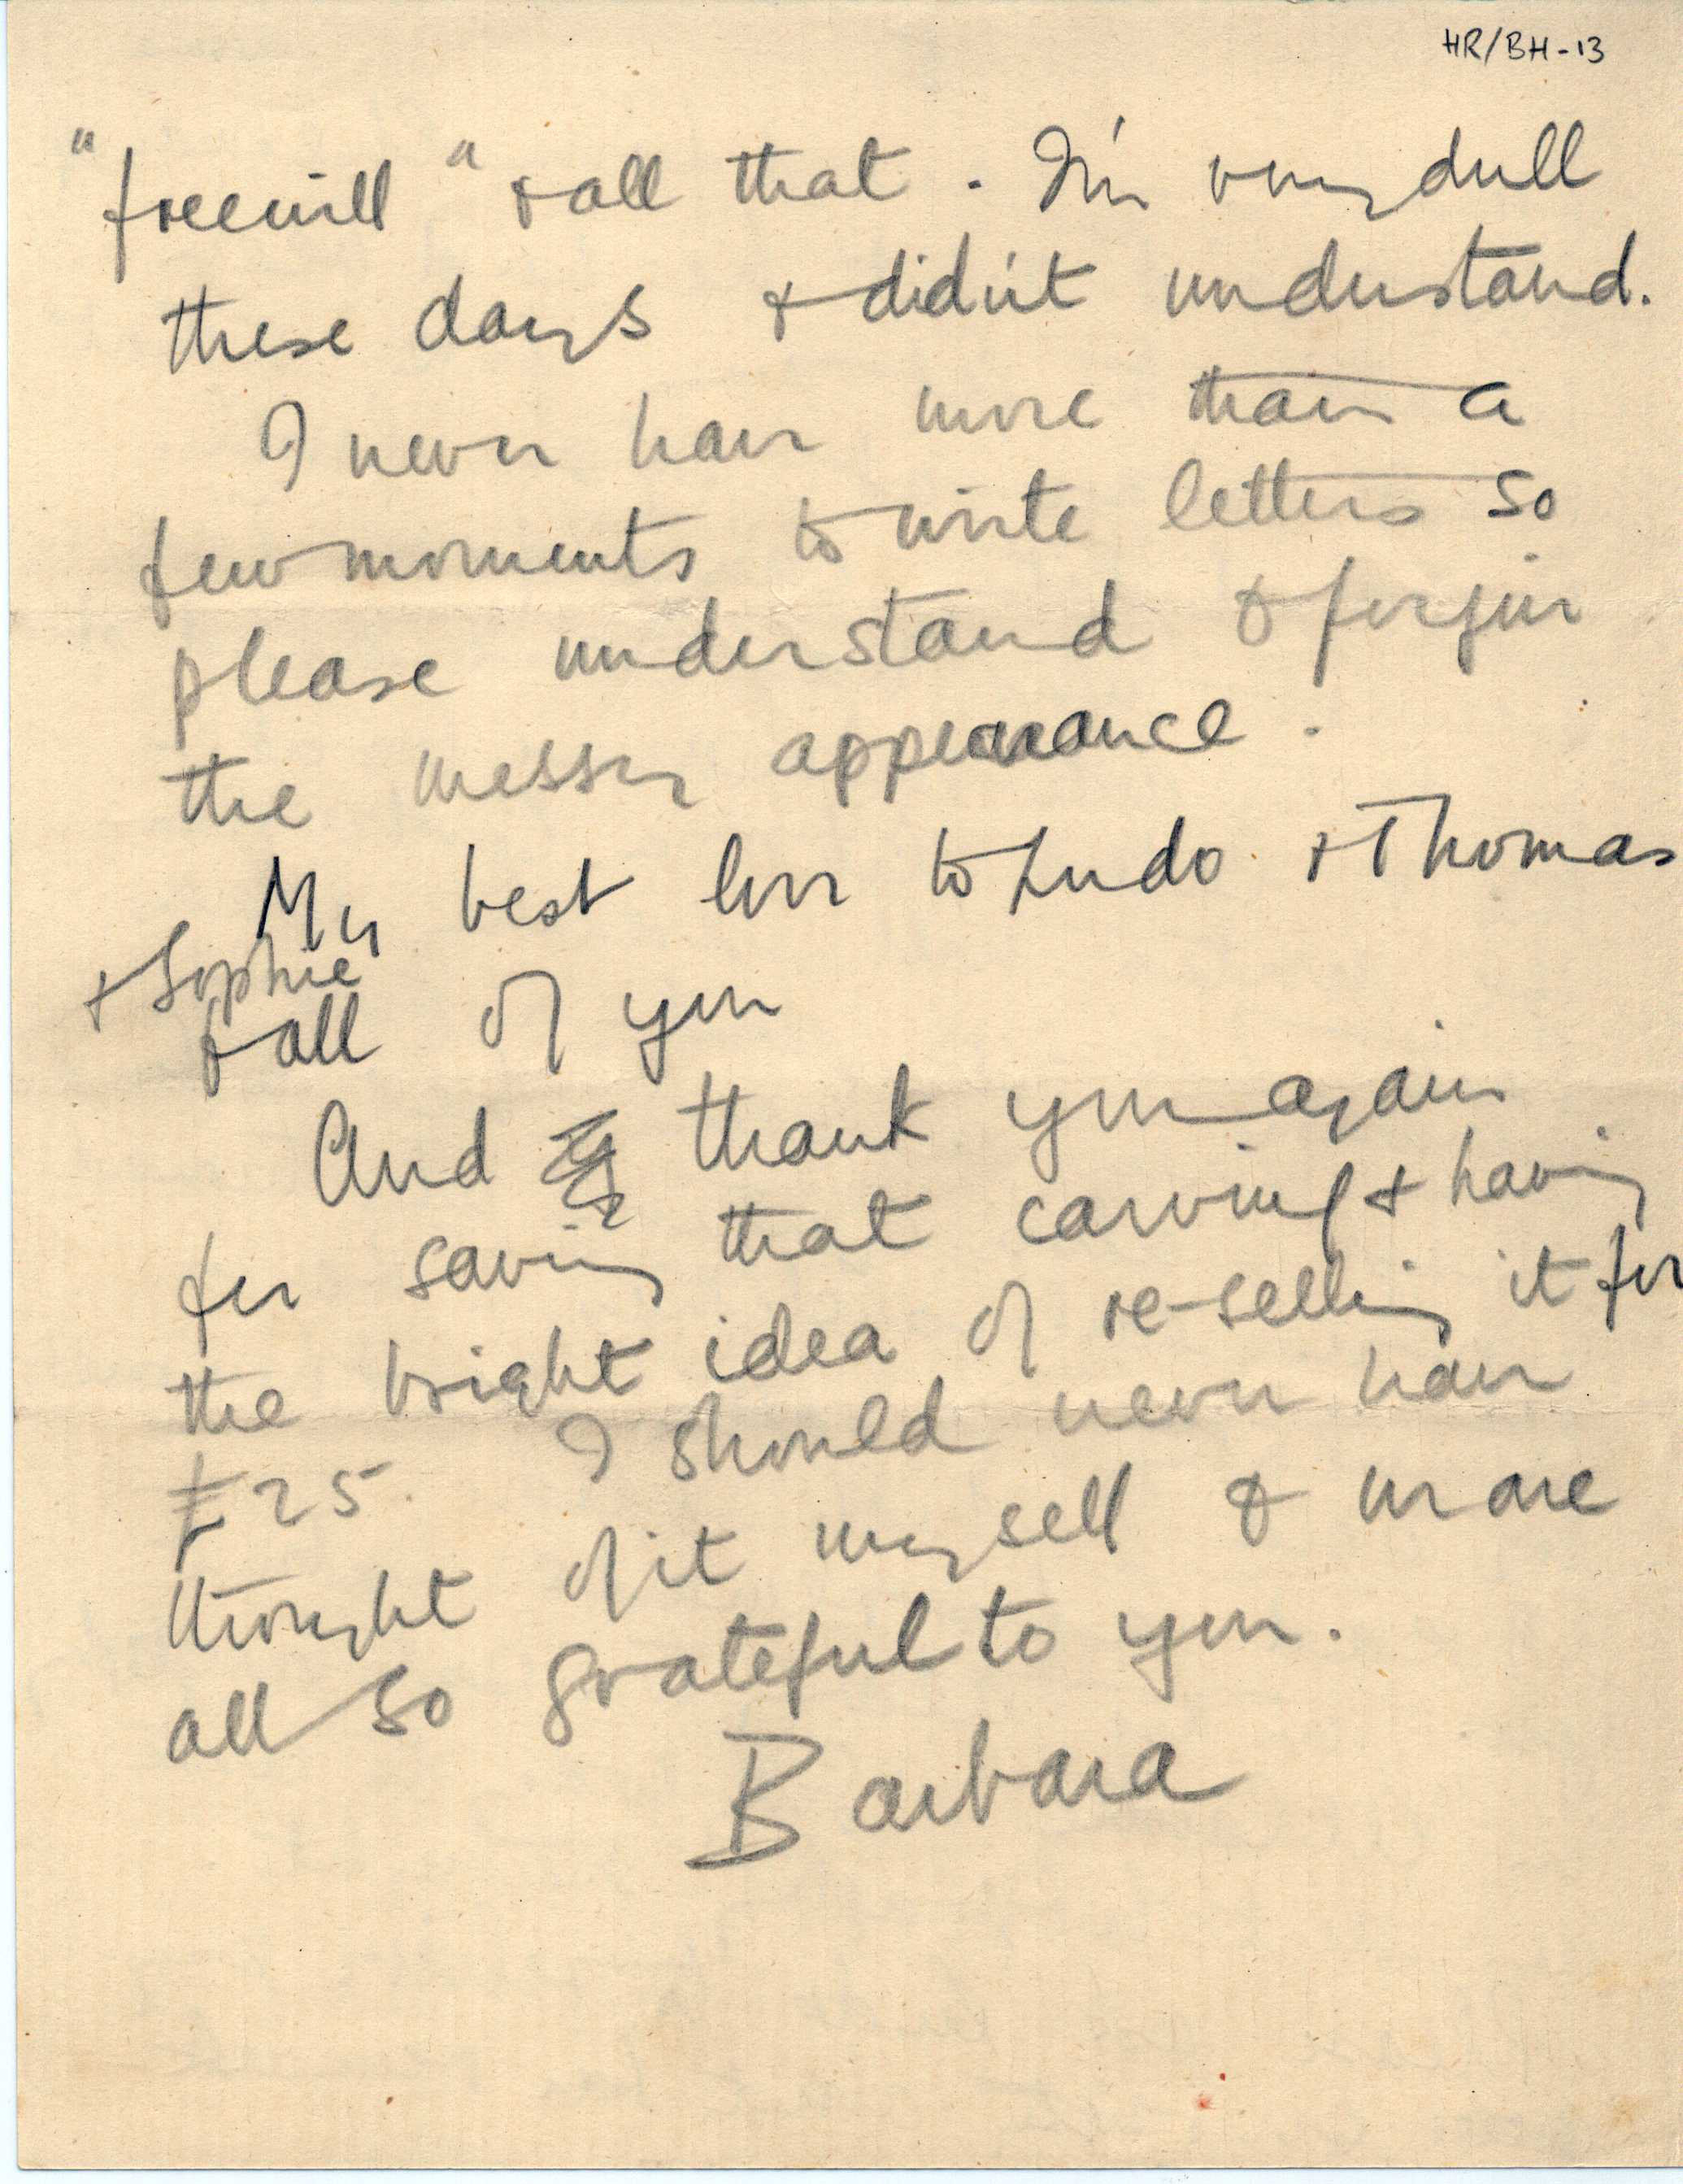 HR/BH-13
"freewill" & all that. I'm very dull
these days & didn't understand.
I never have more than a
few moments to write letters so
please understand & forgive
the messy appearance.
My best love to Ludo & Thomas
& Sophie
& all of you
And thank you again
for saving that carving & having
the bright idea of re-selling it for
£25. I should never have
thought of it myself & we are
all so grateful to you.
Barbara